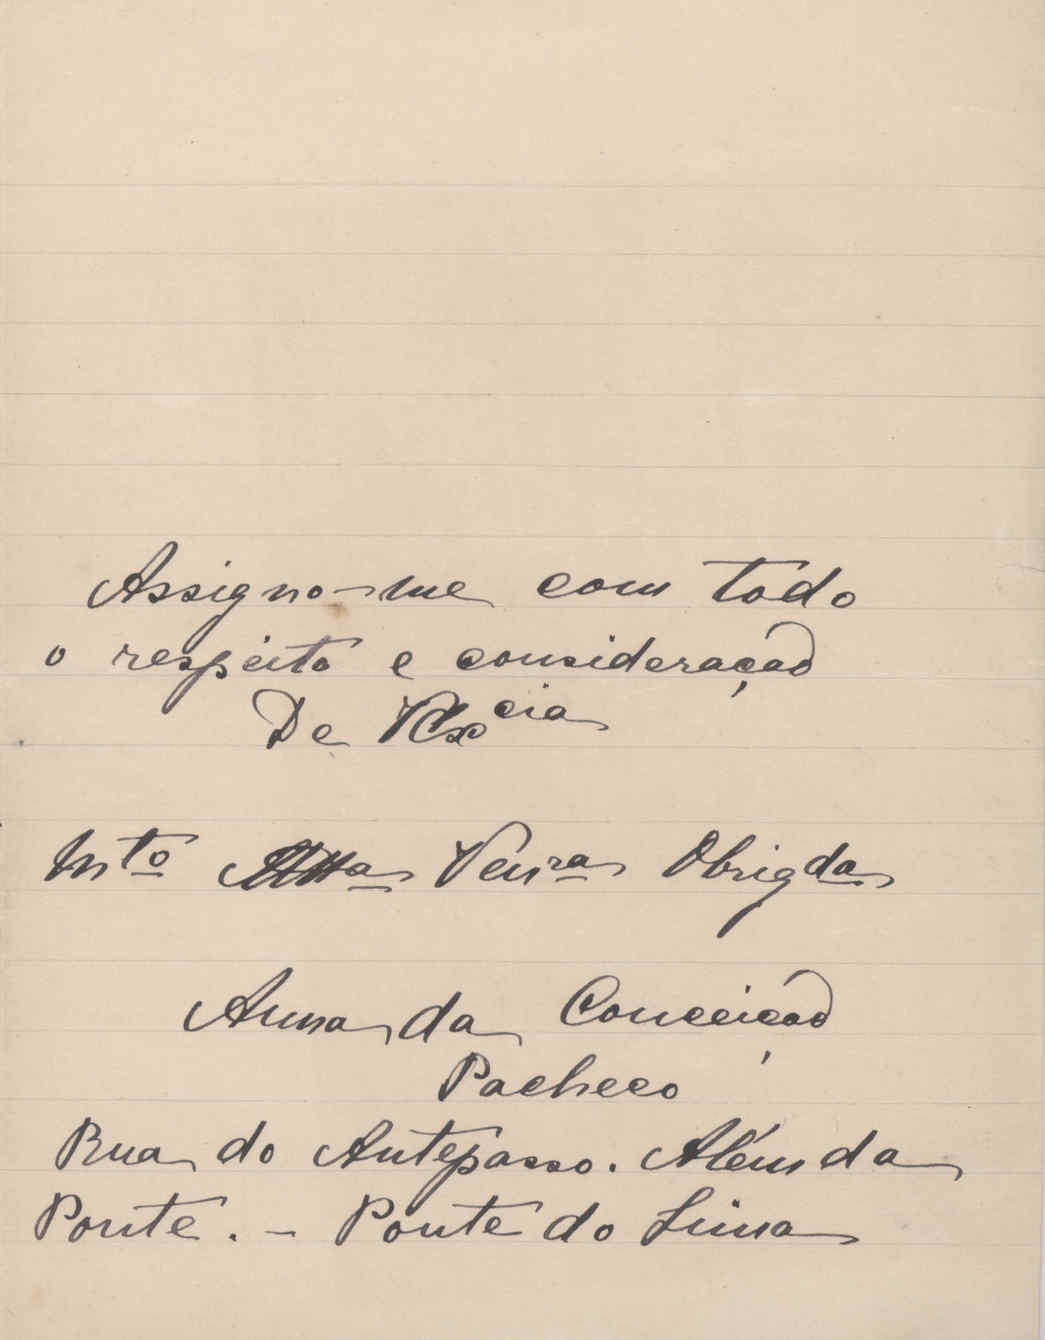 Assigno-me com todo
o respeito e consideração
De VExcia
Mto Atta Venra Obrigda
Anna da Conceição
Pacheco
Rua do Antepasso. Além da
Ponte. - Ponte do Lima